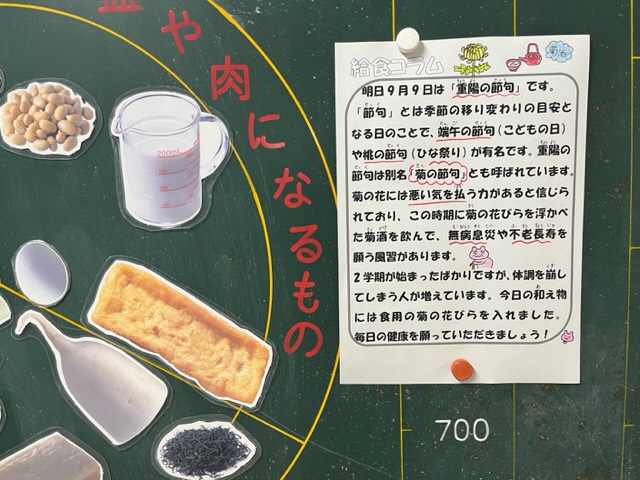 血や肉になるもの
200mL
給食コラム
明日9月9日は「重陽の節句」です。
「節句」とは季節の移り変わりの目安と
なる日のことで、端午の節句(こどもの日)
や桃の節句(ひな祭り)が有名です。重陽の
節句は別名「菊の節句」とも呼ばれています。
菊の花には悪い気を払う力があると信じら
れており、この時期に菊の花びらを浮かべ
た菊酒を飲んで、無病息災や不老長寿を
願う風習があります。
2学期が始まったばかりですが、体調を崩し
てしまう人が増えています。今日の和え物
には食用の菊の花びらを入れました。
毎日の健康を願っていただきましょう!
700